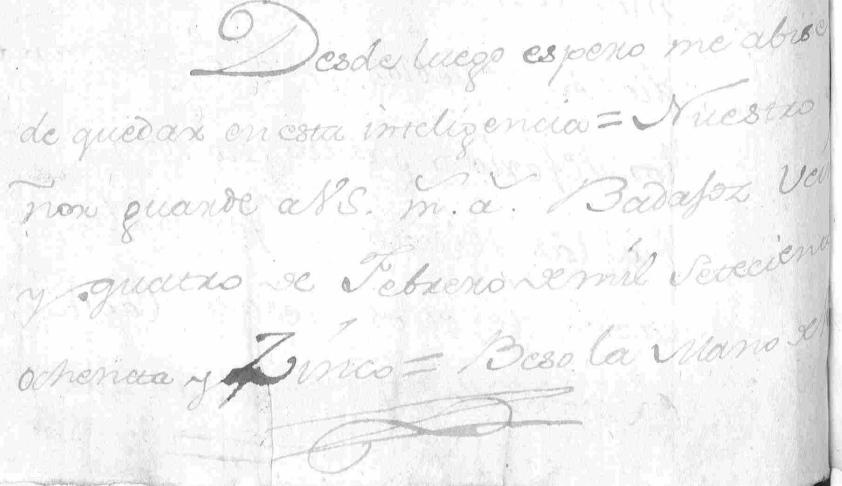 Desde luego espero me abise
de quedar en esta inteligencia = Nuestro
ñor guarde a V S. m.^s a.^s Badajoz Vei
y quatro de Febrero de mil Setecien
ochenta y Zinco = Beso la Mano de